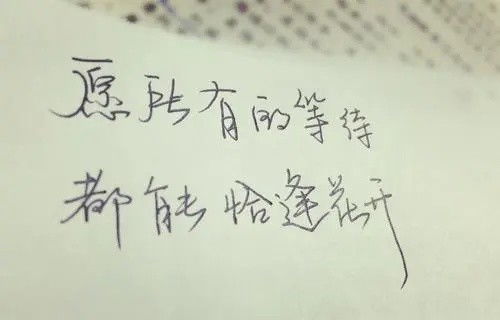 愿所有的等待
都能恰逢花开